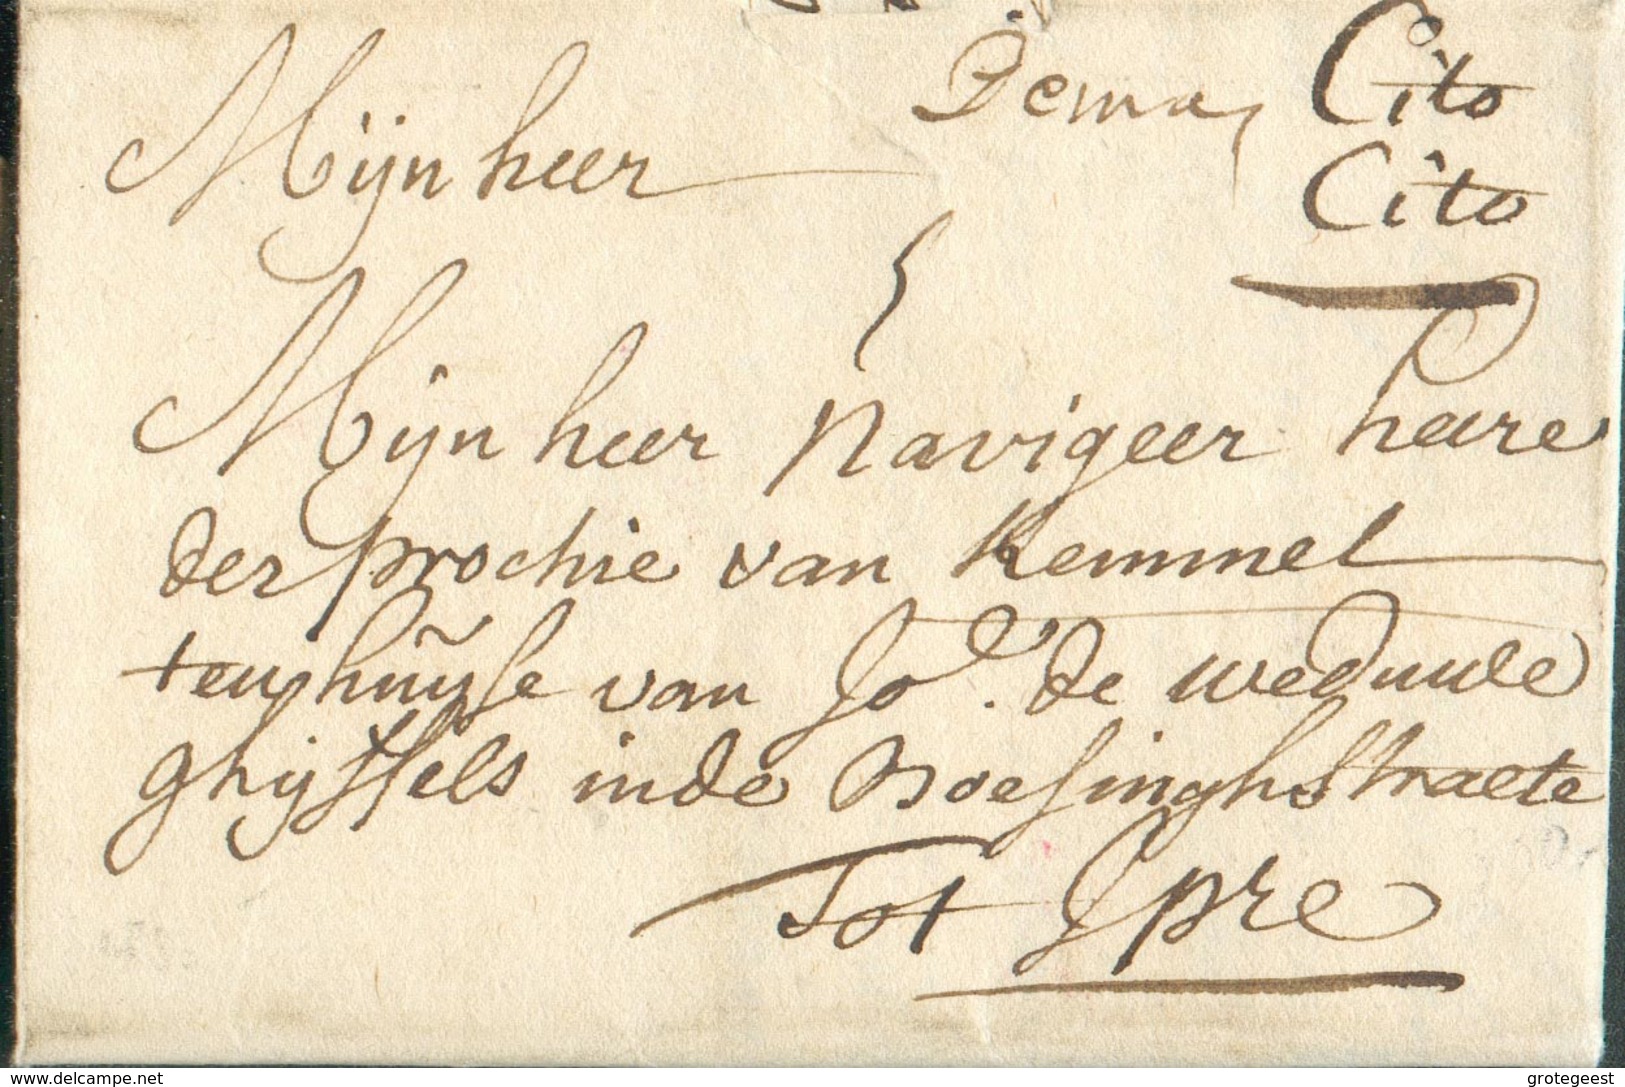 Cito
Cito
Mijn heer
Mijn heer Navigeer heere
der prochie van Kemmel
ten huÿse van Jo.e de weduwe
ghijssels in de Boesinghstraete
Tot Ipre
www.delcampe.net
grotegeest